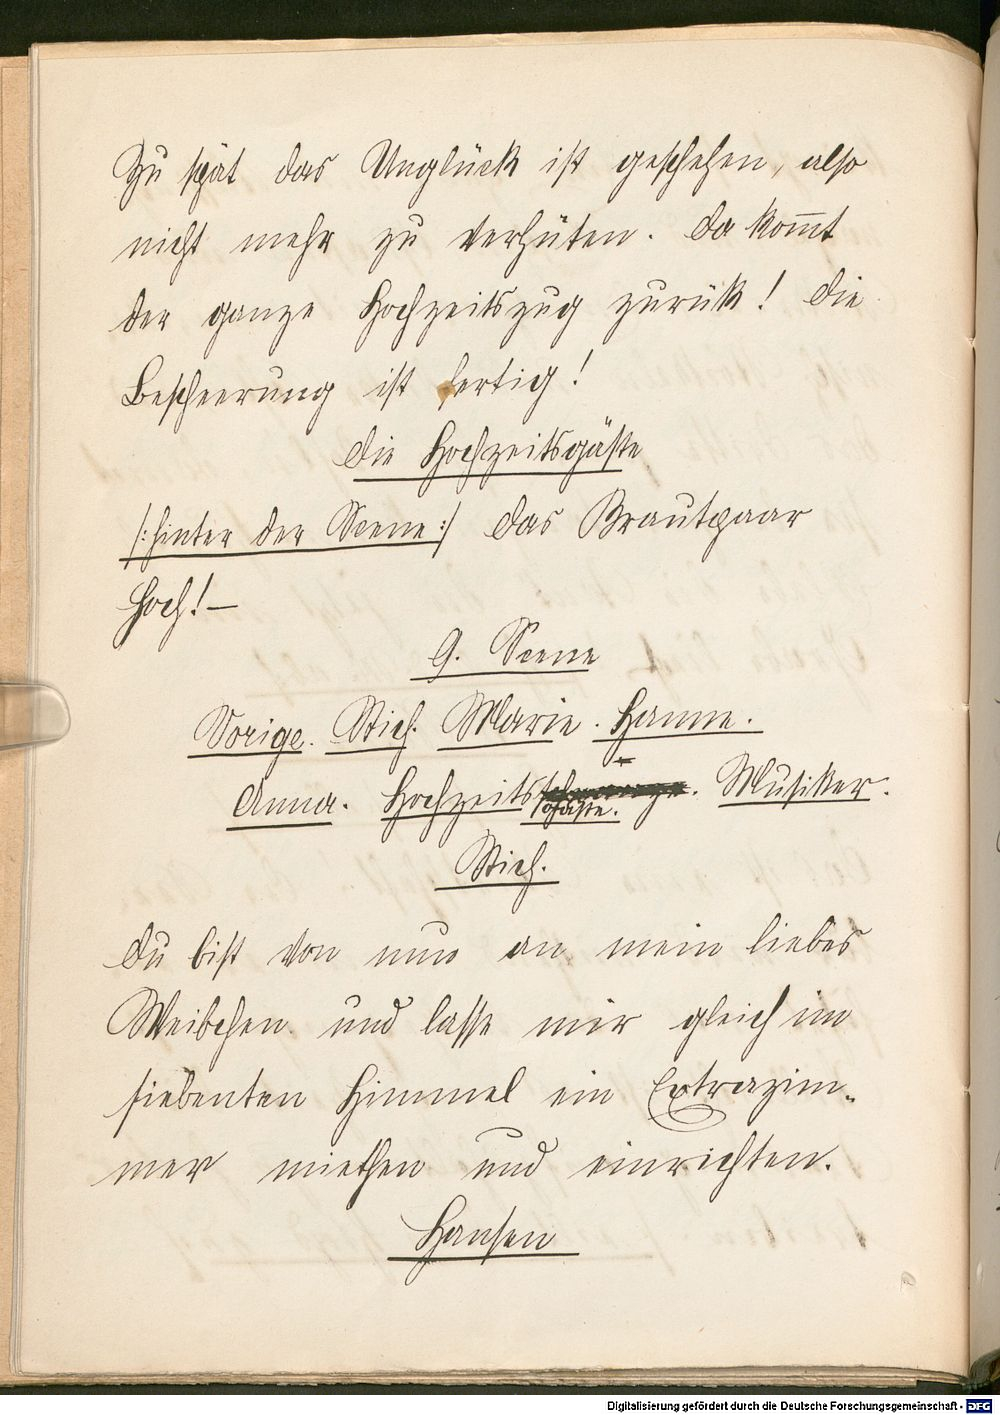 Zu spät das Unglück ist geschehen, also
nicht mehr zu verhüten. Da kom̅t
der ganze Hochzeitszug zurük! Die
Bescheerung ist fertig!
Die Hochzeitsgäste
/:hinter der Scene:/ Das Brautpaar
Hoch!—
9. Scene
Vorige. Stich. Marie. Hanne.
Anna. Hochzeits gäste. Musiker.
Stich.
Du bist von nun an mein liebes
Weibchen und lasse mir gleich im
siebenten Himmel ein Extrazim-
mer miethen und einrichten.
Hansen
Digitalisierung gefördert durch die Deutsche Forschungsgemeinschaft - DFG